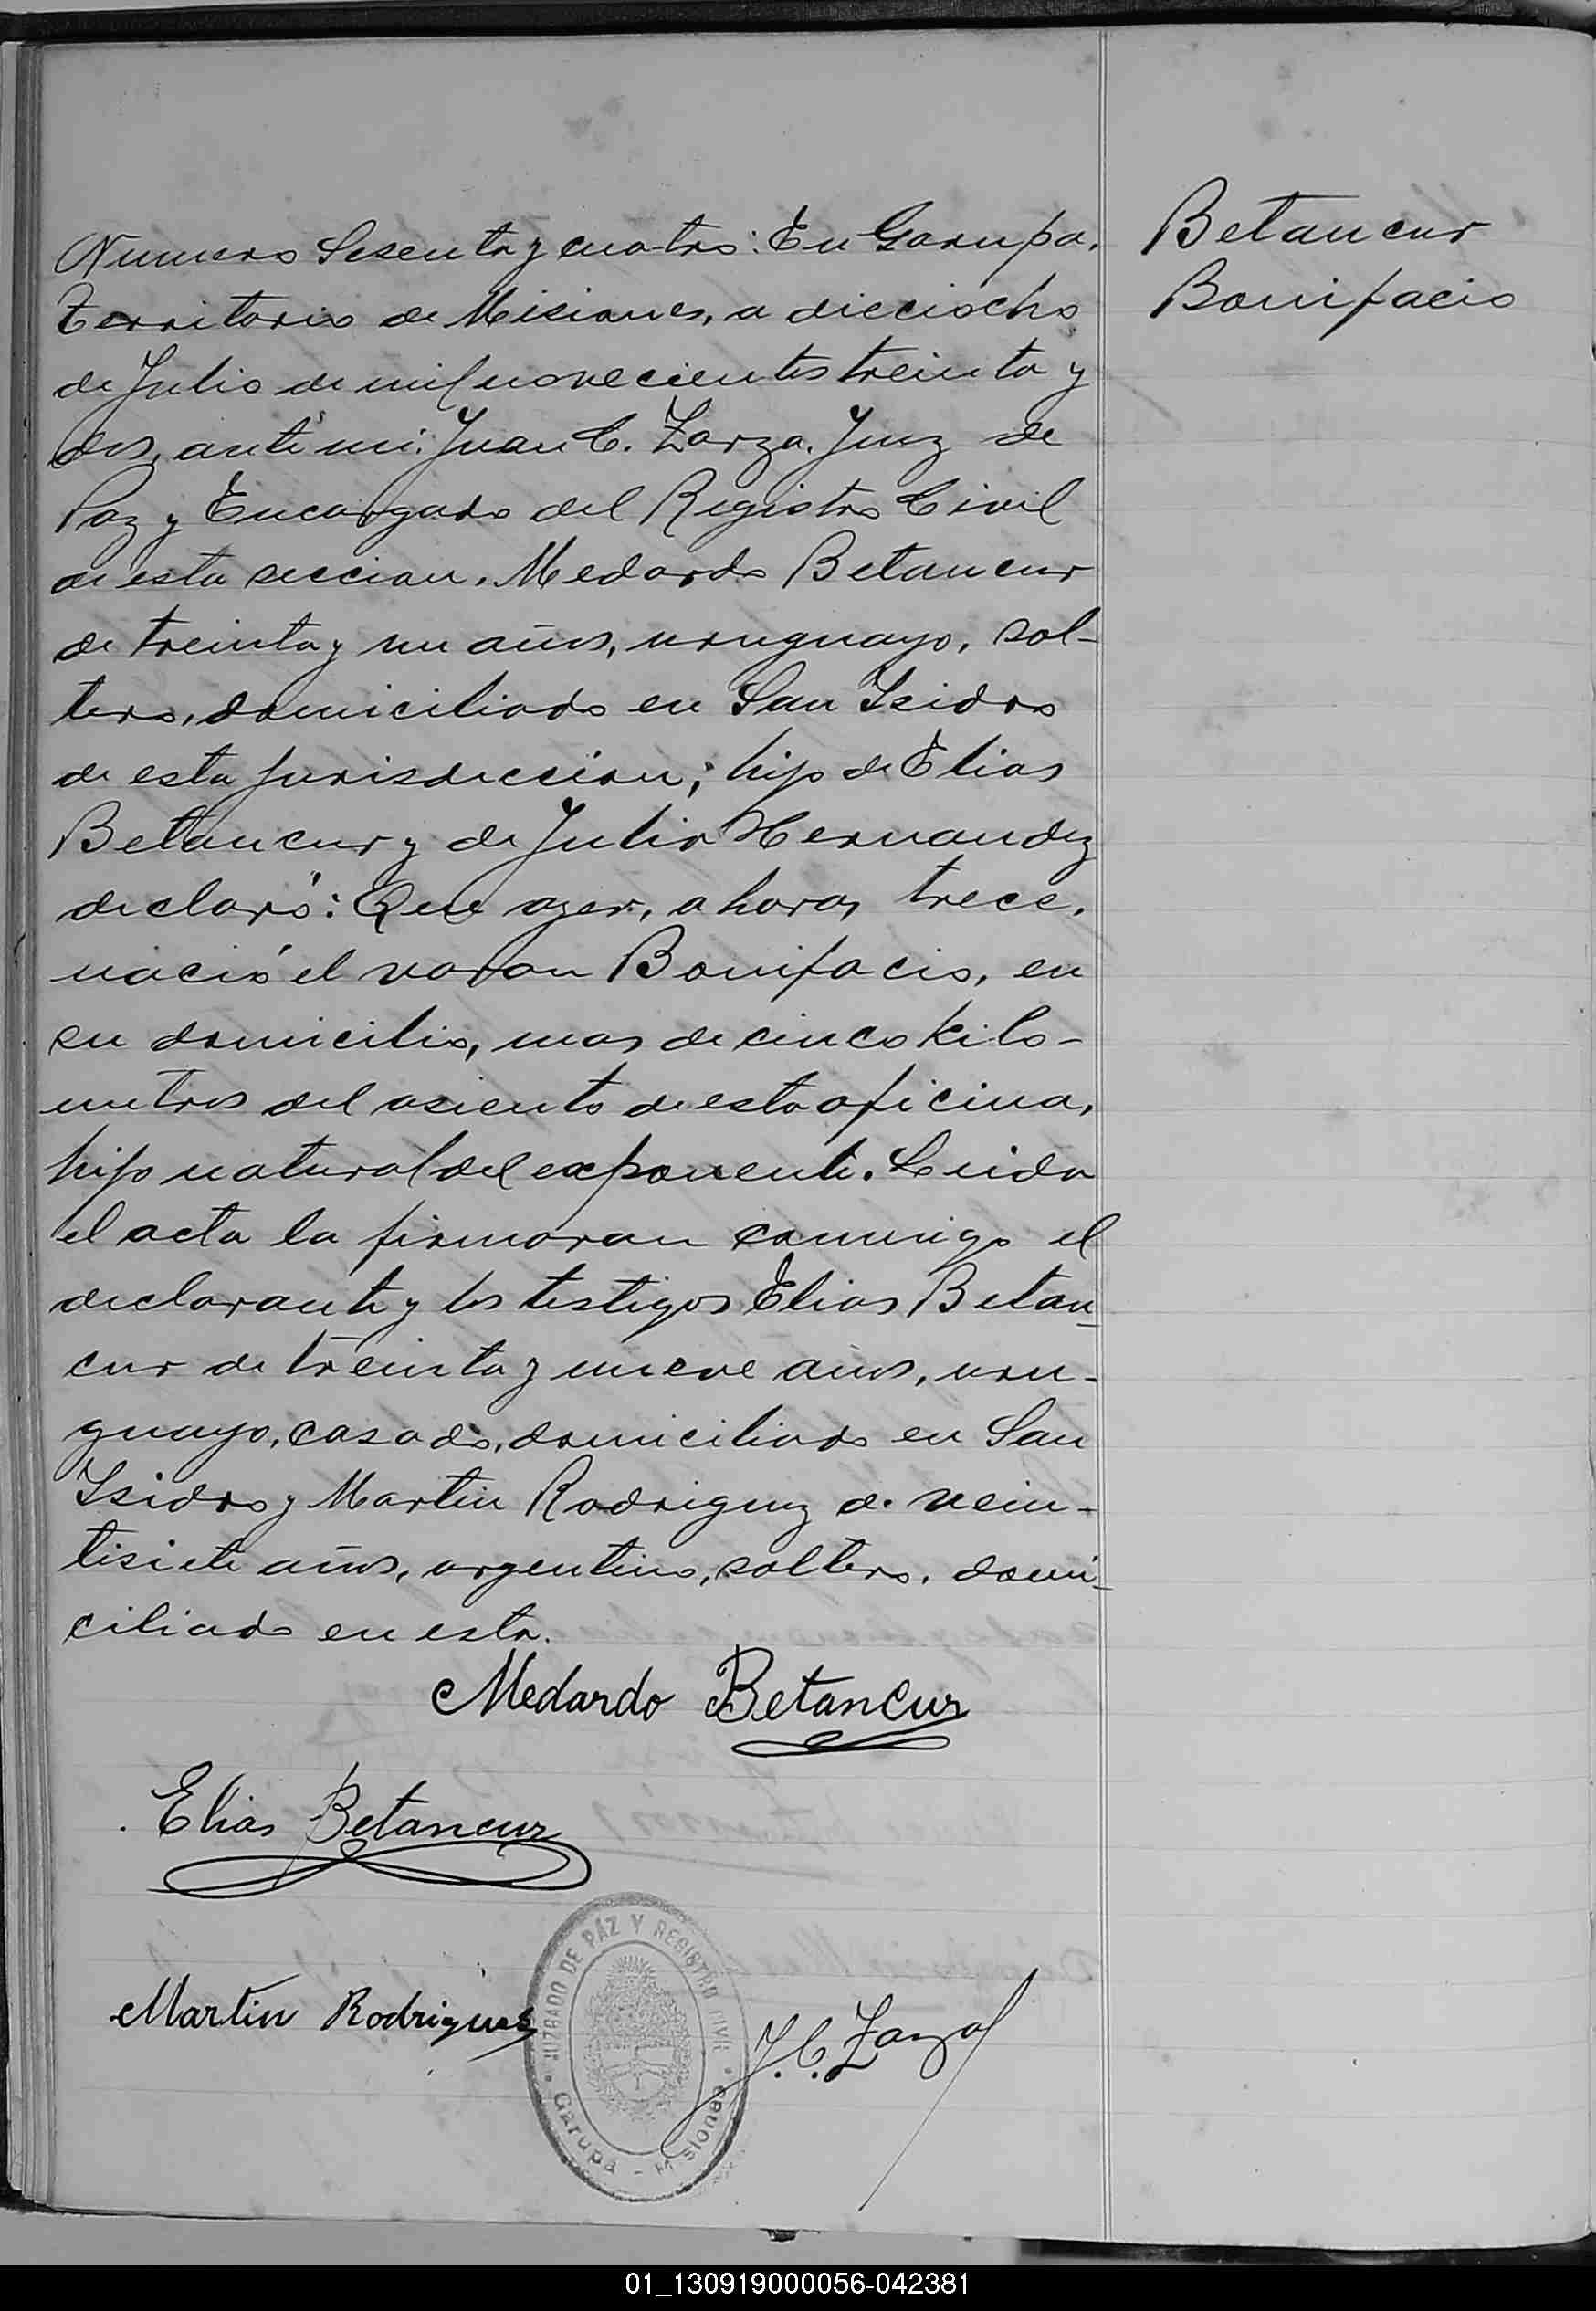 Betancur
Bonifacio
Numero Sesenta y cuatro: En Garupa,
Territorio de Misiones, a dieciocho
de Julio de mil novecientos treinta y
dos, ante mi: Juan C. Zarza. Juez de
Paz y Encargado del Registro Civil
de esta seccion. Medardo Betancur
de treinta y un años, uruguayo, sol-
tero, domiciliado en San Isidro
de esta jurisdiccion; hijo de Elias
Betancur y de Julia Hernandez
declaró: Que ayer, a horas trece,
nació el varon Bonifacio, en
su domicilio, mas de cinco kilo-
metros del asiento de esta oficina,
hijo natural del exponente. Leida
el acta la firmaran conmigo el
declarante y los testigos Elias Betan-
cur de treinta y nueve años, uru-
guayo, casado, domiciliado en San
Isidro y Martin Rodriguez de vein-
tisiete años, argentino, soltero, domi-
ciliado en esta.
Medardo Betancur
Elias Betancur
Martin Rodriguez
J. C. Zarza
JUZGADO DE PÁZ Y REGISTRO CIVIL
Garupá - Misiones
01_130919000056-042381